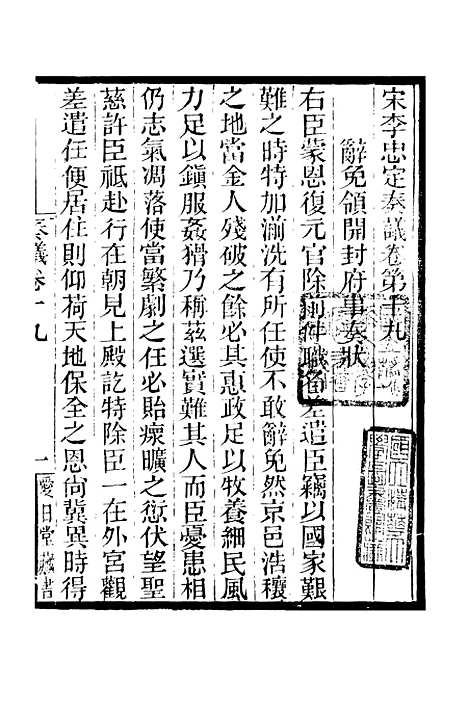 宋李忠定奏議卷第十九
辭免領開封府事奏狀
右臣蒙恩復元官除前件職名差遣臣竊以國家艱
難之時特加湔洗有所任使不敢辭免然京邑浩穰
之地當金人殘破之餘必其惠政足以牧養細民風
力足以鎭服姦猾乃稱茲選實難其人而臣憂患相
仍志氣凋落使當繁劇之任必貽瘝曠之愆伏望聖
慈許臣祇赴行在朝見上殿訖特除臣一在外宮觀
差遣任便居住則仰荷天地保全之恩尙冀異時得
奏議卷十九
一
愛日堂藏書